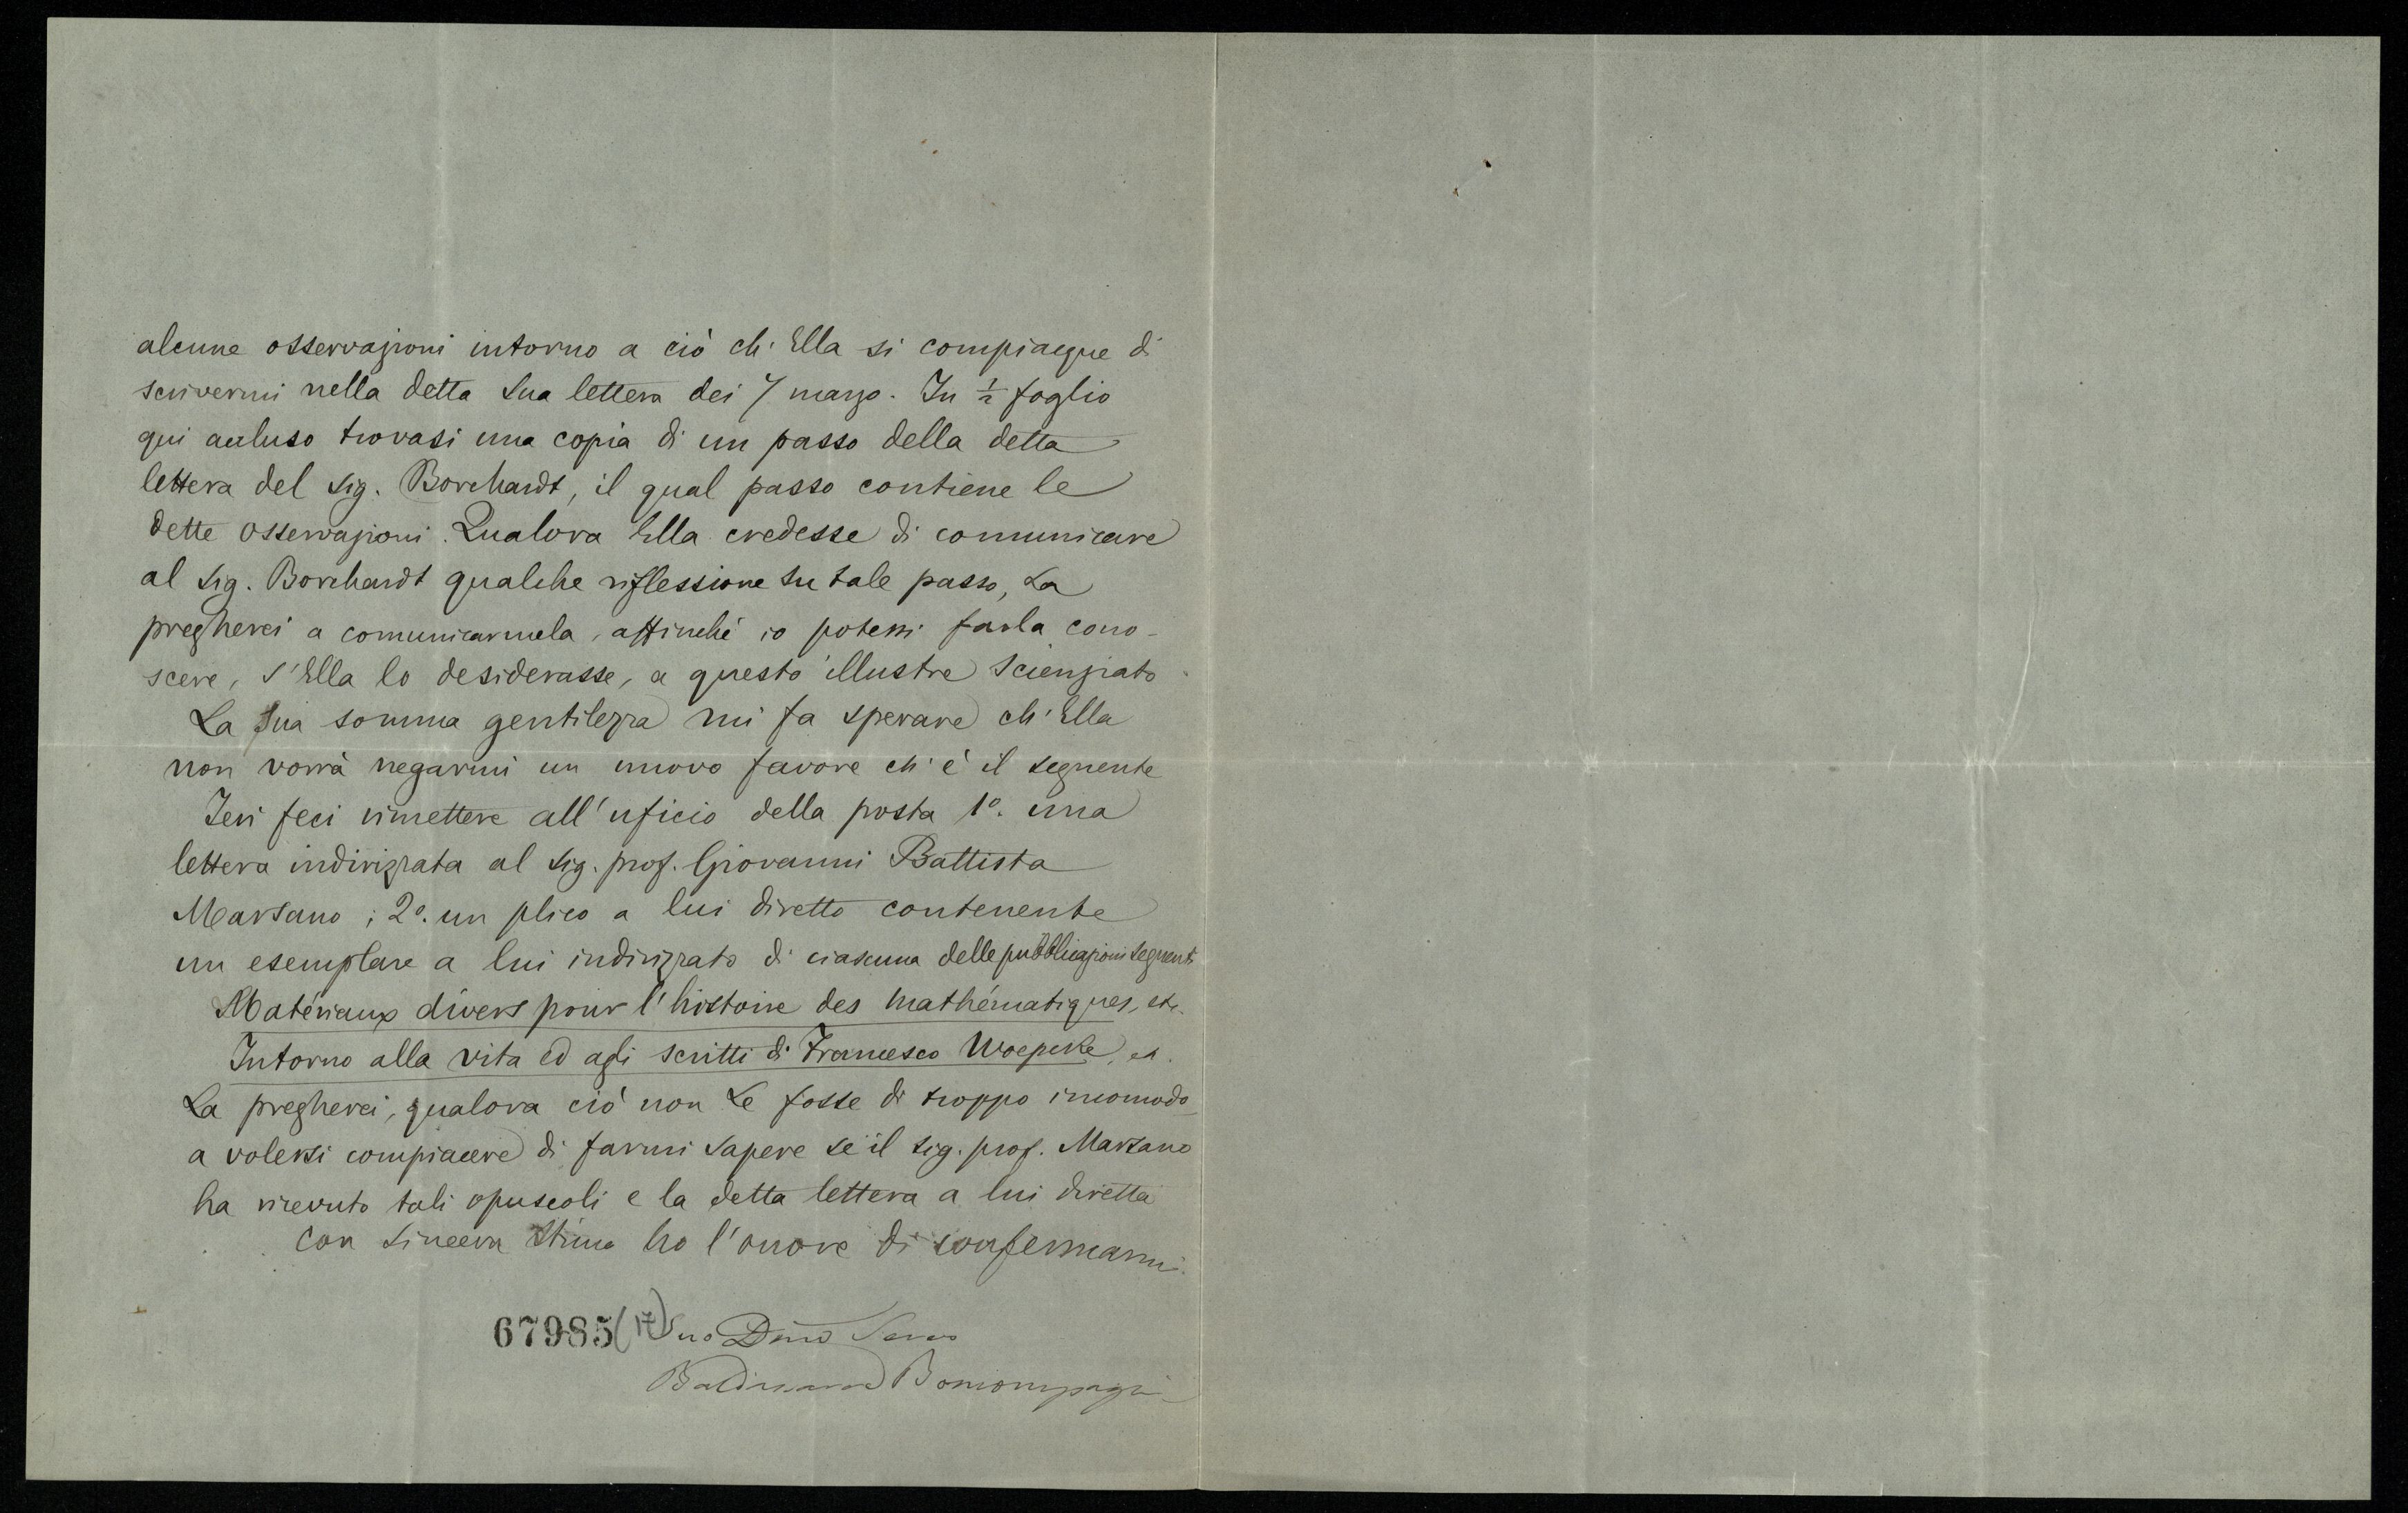 alcune osservazioni intorno a ciò ch'Ella si compiacque di
scrivermi nella detta Sua lettera dei 7 marzo. In ½ foglio
qui accluso trovasi una copia di un passo della detta
lettera del Sig. Borchardt, il qual passo contiene le
dette osservazioni. Qualora Ella credesse di comunicare
al Sig. Borchardt qualche riflessione su tale passo, La
pregherei a comunicarmela, affinché io potessi farla cono-
scere, s'Ella lo desiderasse, a questo illustre scienziato.
La Sua somma gentilezza mi fa sperare ch'Ella
non vorrà negarmi un nuovo favore ch'è il seguente
Ieri feci rimettere all'uficio della posta 1º. una
lettera indirizzata al Sig. prof. Giovanni Battista
Marsano; 2º. un plico a lui diretto contenente
un esemplare a lui indirizzato di ciascuna delle pubblicazioni seguenti
Matériaux divers pour l'histoire des mathématiques, etc.
Intorno alla vita ed agli scritti di Francesco Woepcke, ec.
La pregherei, qualora ciò non Le fosse di troppo incomodo
a volersi compiacere di farmi sapere se il sig. prof. Marsano
ha ricevuto tali opuscoli e la detta lettera a lui diretta
Con sincera stima ho l'onore di confermarmi.
67985(17) Suo Dmo Servo
Baldassarre Boncompagni